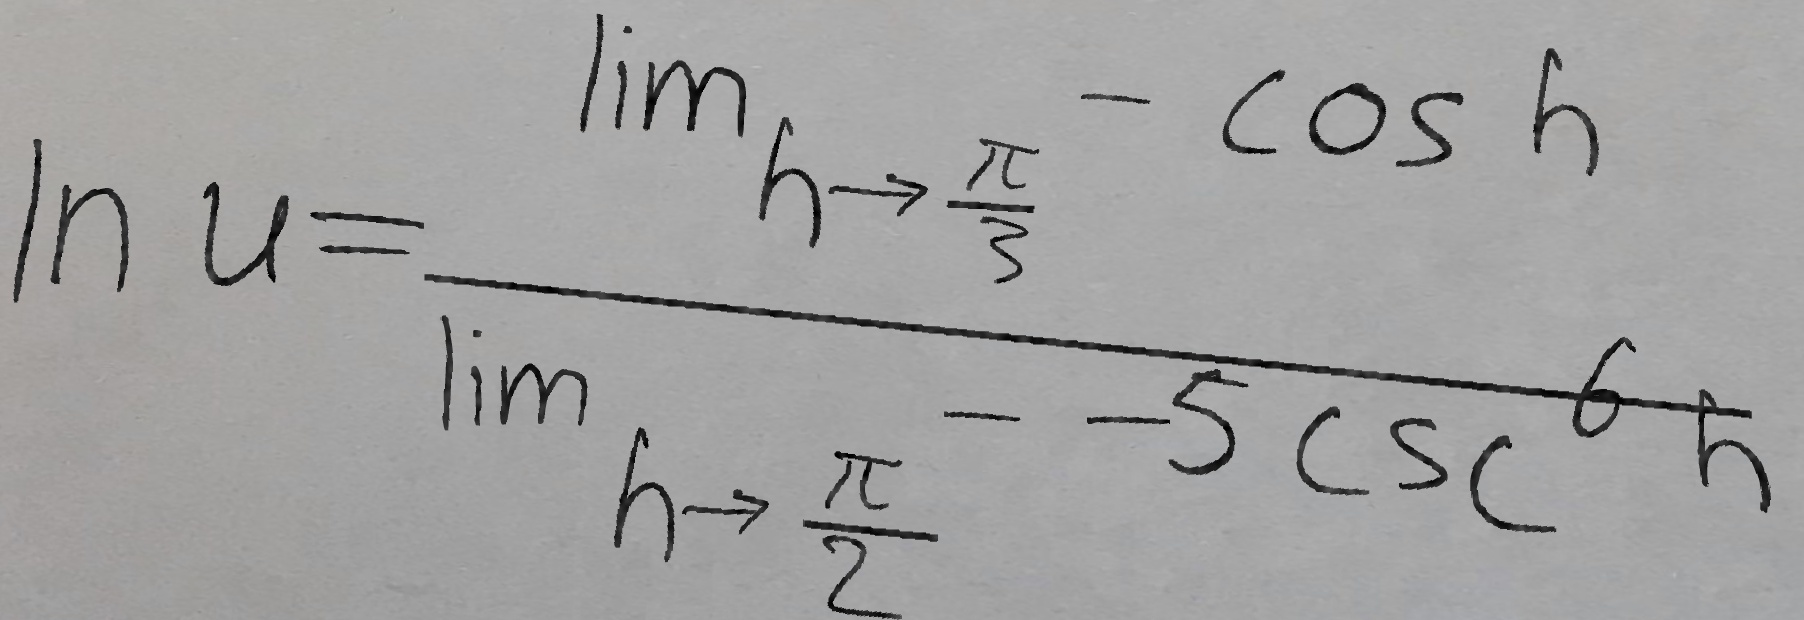 ln u = \frac{\lim_{h \to \frac{\pi}{3}} - \cos h}{\lim_{h \to \frac{\pi}{2}} - -5 \csc^6 h}